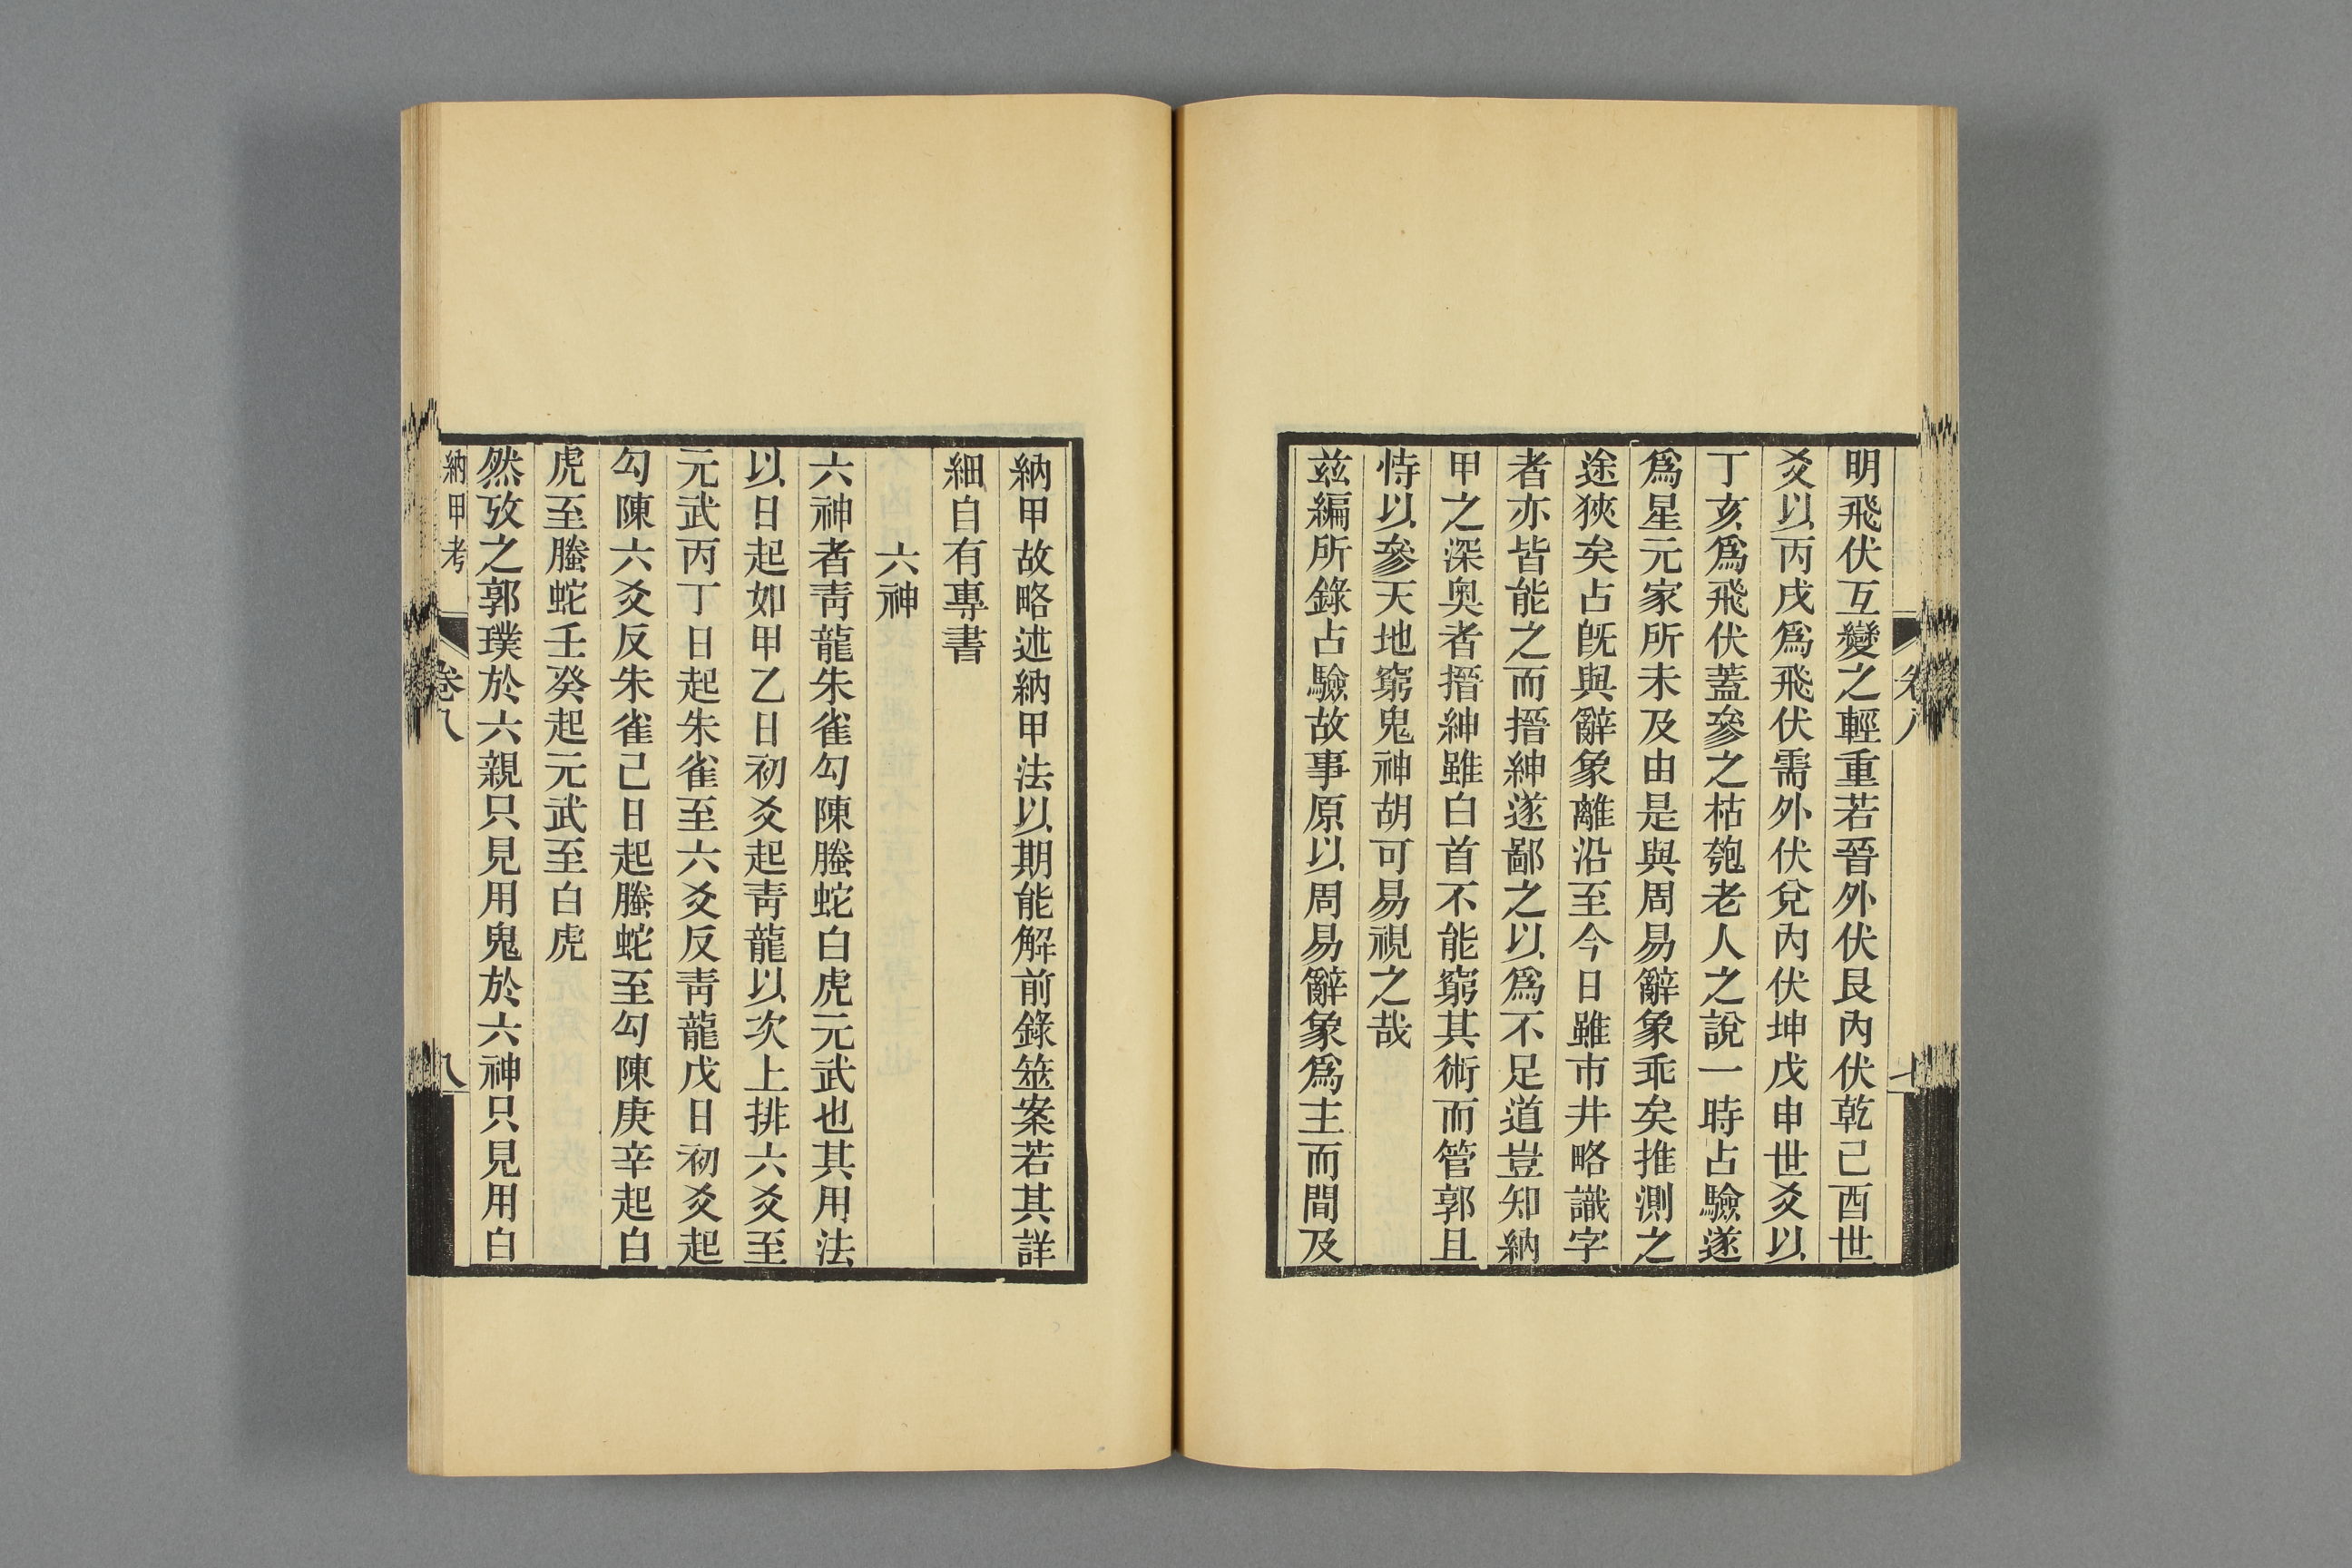 卷八
七
明飛伏互變之輕重若晉外伏艮內伏乾己酉世
爻以丙戌爲飛伏需外伏兌內伏坤戊申世爻以
丁亥爲飛伏蓋參之枯匏老人之說一時占驗遂
爲星元家所未及由是與周易辭象乖矣推測之
途狹矣占旣與辭象離沿至今日雖市井略識字
者亦皆能之而搢紳遂鄙之以爲不足道豈知納
甲之深奧者搢紳雖白首不能窮其術而管郭且
恃以參天地窮鬼神胡可易視之哉
茲編所錄占驗故事原以周易辭象爲主而間及
納甲故略述納甲法以期能解前錄筮案若其詳
細自有專書
六神
六神者靑龍朱雀勾陳螣蛇白虎元武也其用法
以日起如甲乙日初爻起靑龍以次上排六爻至
元武丙丁日起朱雀至六爻反靑龍戊日初爻起
勾陳六爻反朱雀己日起螣蛇至勾陳庚辛起白
虎至螣蛇壬癸起元武至白虎
然攷之郭璞於六親只見用鬼於六神只見用白
納甲考
卷八
八